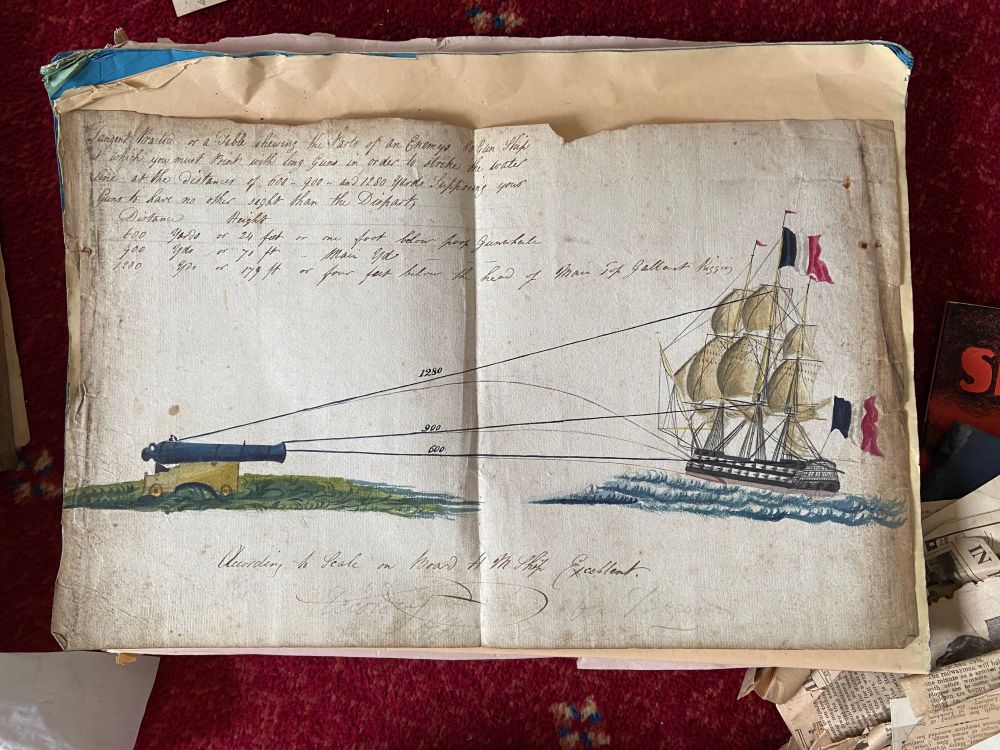 Tangent Practice or a Table shewing the Parts of an Enemys 80 Gun Ship
at which you must Point with long Guns in order to strike the water
line at the distances of 600 .. 900 .. and 1280 Yards Supposing your
Guns to have no other sight than the Dispart,
Distance Height
600 Yards or 24 feet or one foot below poop Gunwhale
900 Yds or 71 ft - Main Yd
1280 Yds or 179 ft or four feet below the head of Main Top Gallant Rigging
1280
900
600
According to Scale on Board H M Ship Excellent.
S
IN